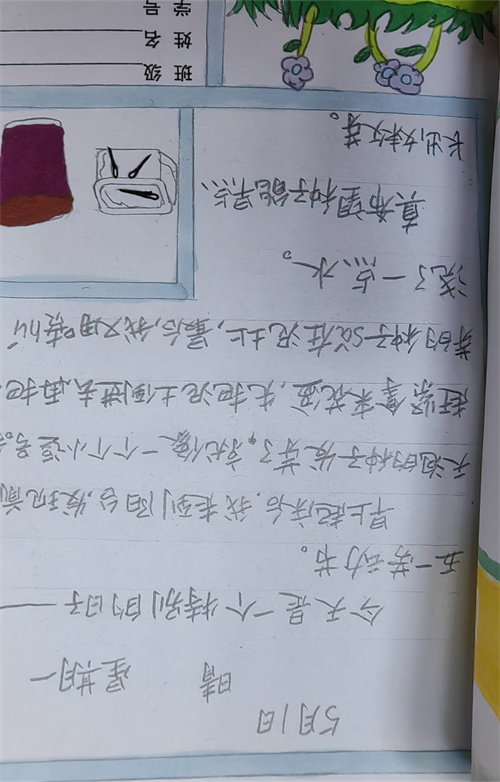 5月1日
晴 星期一
今天是一个特别的日子——
五一劳动节。
早上起床后,我走到阳台,发现前
天泡的种子发芽了。就像一个个小逗号。
赶紧拿来花盆,先把泥土倒进去,再把
芽的种子sǎ在泥土上,最后,我又用喷hú
浇了一点水。
真希望种子能早点
长出芽。
班级
姓名
学号